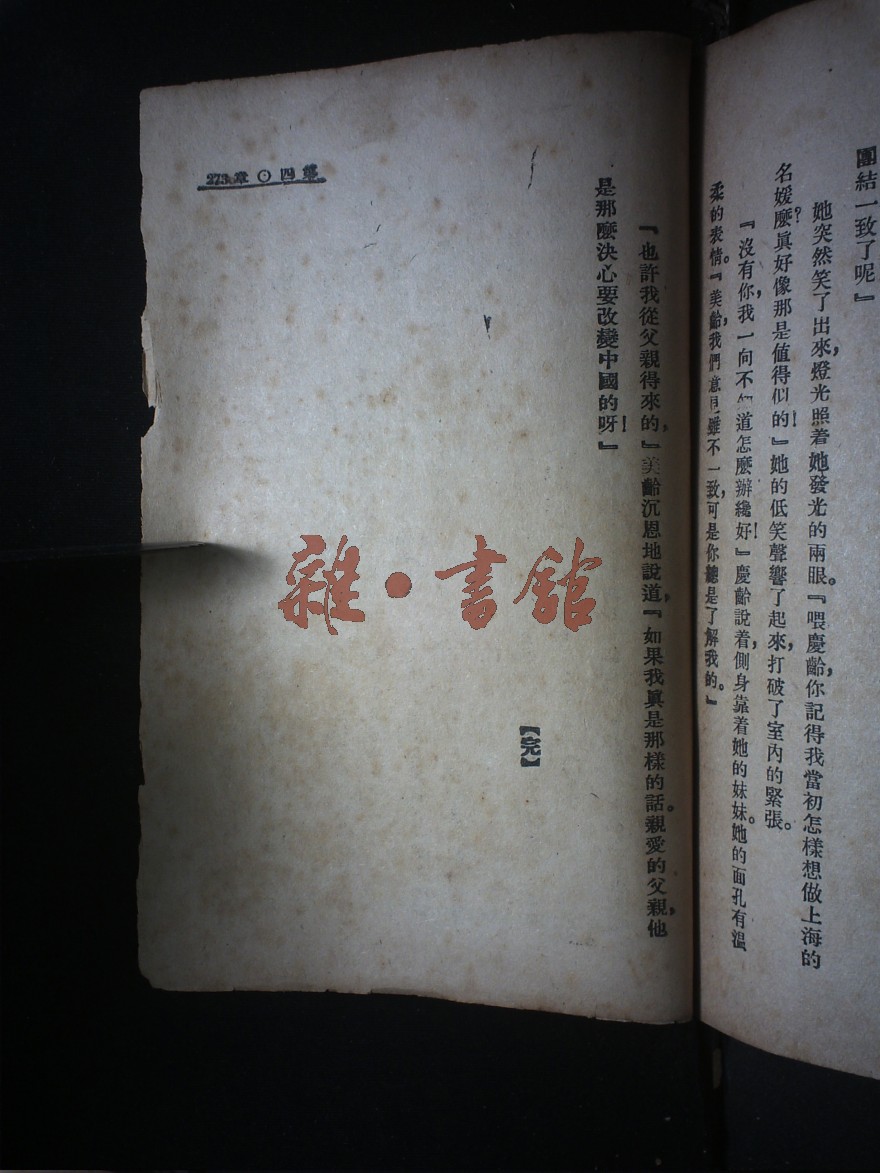 團結一致了呢』
她突然笑了出來，燈光照着她發光的兩眼。『喂，慶齡，你記得我當初怎樣想做上海的
名媛麼？眞好像那是值得似的！』她的低笑聲響了起來，打破了室內的緊張。
『沒有你，我一向不知道怎麼辦纔好！』慶齡說着，側身靠着她的妹妹。她的面孔有溫
柔的表情。『美齡，我們意見雖不一致，可是你總是了解我的。』
『也許我從父親得來的，』美齡沉恩地說道，『如果我眞是那樣的話。親愛的父親，他
是那麼決心要改變中國的呀！』
【完】
273 章⊙四第
雜·書館